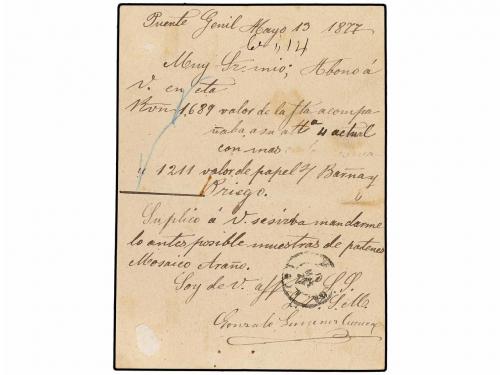 Puente Genil Mayo 13 1877
Muy Sr. mio; Abono á
V. en cta
Rvn 1,689 valor de la fta acompa
ñaba, a su atta 4 actual
con mas
" 1211 valor de papel s/ Barna y
Priego.
Suplico á V. se sirva mandarme
lo antes posible muestras de patenes
Mosaico Araño.
Soy de V. aff S. S.
Q. B. S. M.
Gonzalo